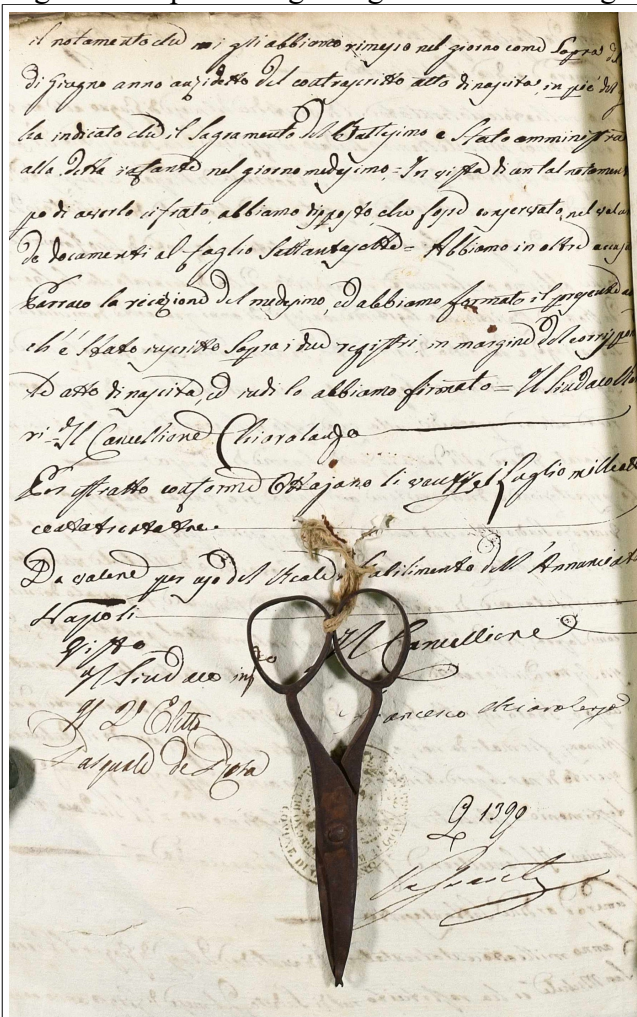 il notamento che noi gli abbiamo rimesso nel giorno come Sopra
di Giugno anno anzidetto del controscritto atto di nascita, in piè del
ha indicato che il Sagramento del Battesimo è Stato amministra
alla detta infante nel giorno medesimo = In vista di un tal notamen
po di averlo cifrato, abbiamo disposto, che fosse conservato, nel volu
de documenti al foglio Settantasette = Abbiamo in oltre accus
Parroco la recezione del medesimo, ed abbiamo formato il presente
ch'è Stato inscritto Sopra i due registri in margine del corrispon
te atto di nascita, ed indi lo abbiamo firmato = Il Sindaco
ri = Il Cancelliere
Per estratto conforme Ottajano li Luglio mille
centotrentatre.
Da valere per uso del Reale Stabilimento dell' Annunciat
Napoli
Visto Il Cancelliere
Il Sindaco
Il 2° Eletto Francesco
Pasquale de Rosa
1390